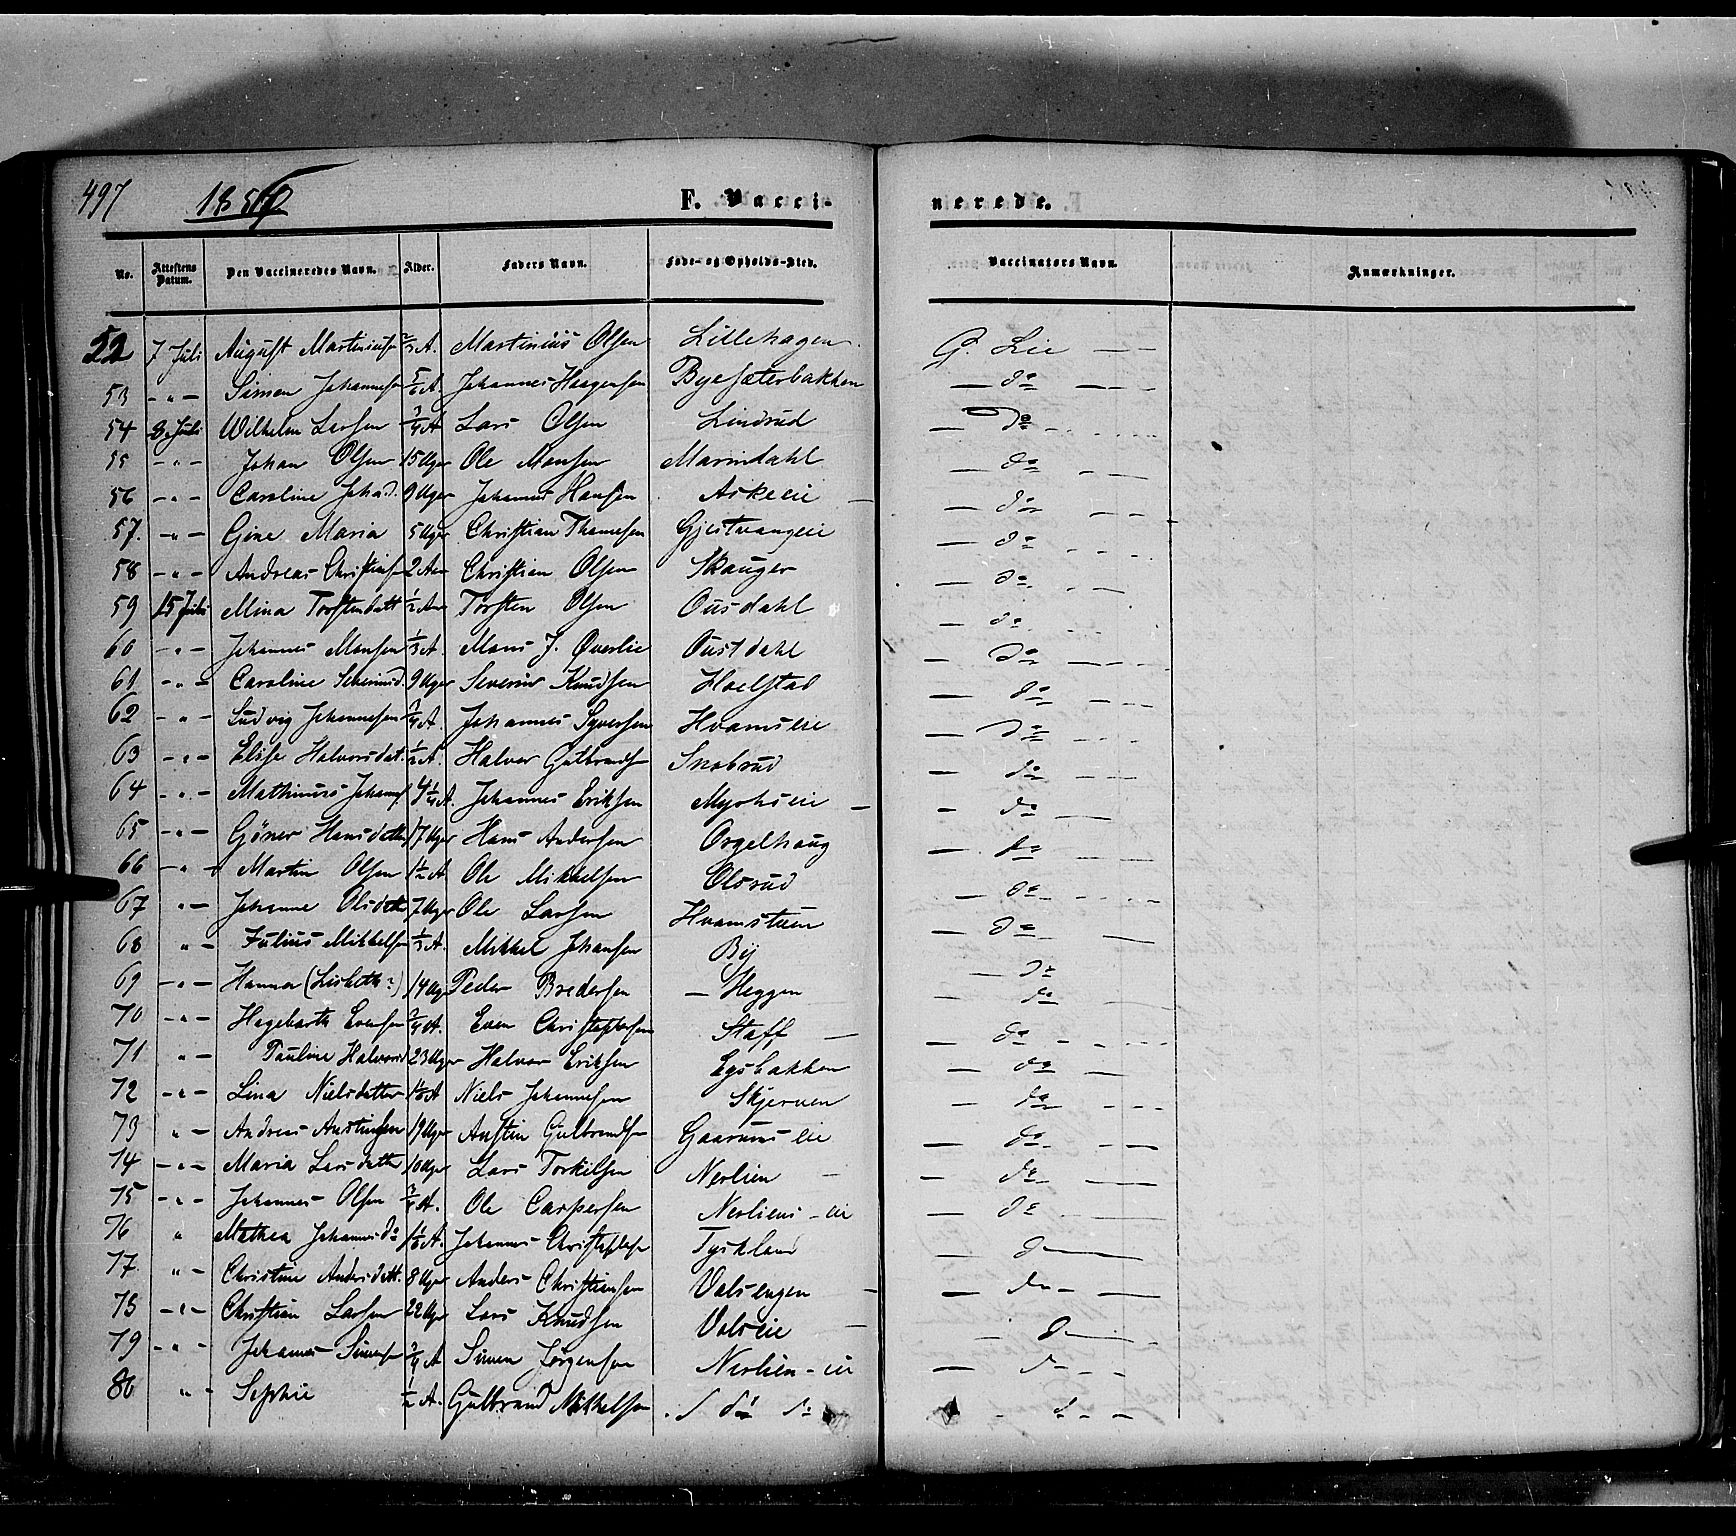 497
F. Vaccinerede.
No. Attestens Datum. Den Vaccineredes Navn. Alder. Faders Navn. Føde- og Opholds-Sted. Vaccinators Navn. Anmærkninger.
52 7 Juli August Martinius 2/3 A. Martinius Olsen Lillehagen G. Lie — —
53 — " — Simen Johannesen 5/6 A. Johannes Haagensen Byesæterbakken — do — — —
54 8 Juli Wilhelm Larsen 3/4 A Lars Olsen Lindrud — Do — — —
55 — " — Johan Olsen 15 Uger Ole Monsen Marindahl — do — —
56 — " — Caroline Johad. 9 Uger Johannes Hansen Askeeie — — do — —
57. — " — Gine Maria 5 Uger Christian Thomesen Gjestvangeie — do — — —
58 — " — Andreas Christians 2 Aar Christian Olsen Skauger — do — —
59 15 Juli Mina Torstendatt 1/2 Aar Torsten Olsen Ousdahl — do — —
60 — " — Johannes Monsen 1/3 A. Mons J. Øverlie Oustdahl — Do — — —
61 — " — Caroline 9 Uger Severin Knudsen Hoelstad — do — —
62 — " — Ludvig Johannesen 3/4 A Johannes Syversen Hvamseie — Do — — —
63 — " — Elise Halvorsdat. 1/2 A. Halvor Gulbrands Snobrud — do — — —
64 — " — Mathinus Johanns 4 1/4 A. Johannes Eriksen Myrhseie — — do — —
65 — " — Gjöner Hansdatter 17 Uger Hans Andersen Orgelhaug — do — — —
66 — " — Martin Olsen 1 1/2 A Ole Mikkelsen Olsrud — do — — —
67 " — Johanne Olsdatt 7 Uger Ole Larsen Hvamstuen — do — —
68 " — Julius Mikkelsen 1/3 A. Mikkel Johansen By — do
69 — " — Hanna (Lisbeth?) 14 Uger Peder Bredesen — Heggen — do — —
70 — " — Hagebarth Evensen 3/4 A. Even Christophersen Staff — — do — — —
71 " — Pauline Halvord 23 Uger Halvor Eriksen Egsbakken — do — —
72 — " — Lina Nielsdatter Niels Johannesen Skjerven — do — — —
73 " — Andreas Austinsen 19 Uger Austin Gulbrands Gaarums eie — do — —
74 — " — Maria Larsdatter 10 Uger Lars Torkelsen Nerlien — — do — —
75 — " — Johannes Olsen 3/4 A. Ole Caspersen Nerliens - eie — do — —
76 " Mathea Johannesdo Johannes Christophs Tyskland — do —
77 " — Christine Andersdatt. 8 Uger Anders Christiansen Valsengen — — do — —
78 — " — Christian Larsen 22 Uger Lars Knudsen Valseie — — do —
79 — " — Johannes Simens 3/4 A Simen Jørgensen Nerlien - eie — do — —
80 " — Sophie 1/2 A. Gulbrand Mikkelsen do do — do — —